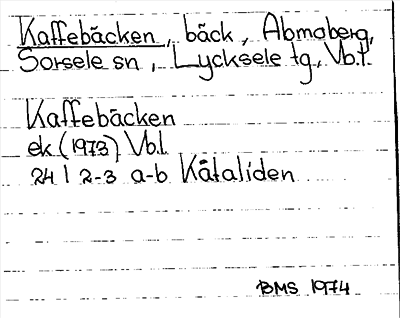 Kaffebäcken, bäck, Abmoberg,
Sorsele sn, Lycksele tg., Vb.l.
Kaffebäcken
ek (1973) Vb.l.
24 I 2-3 a-b Kåtaliden
BMS 1974